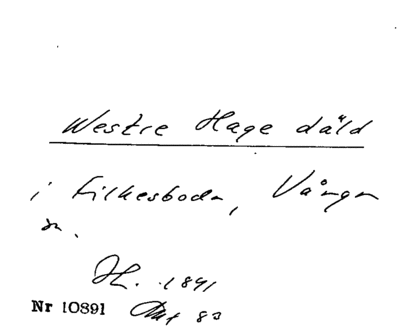 Westre Hage däld
i Filkesboda, Vånga
sn.
H. 1891
Nr 10891